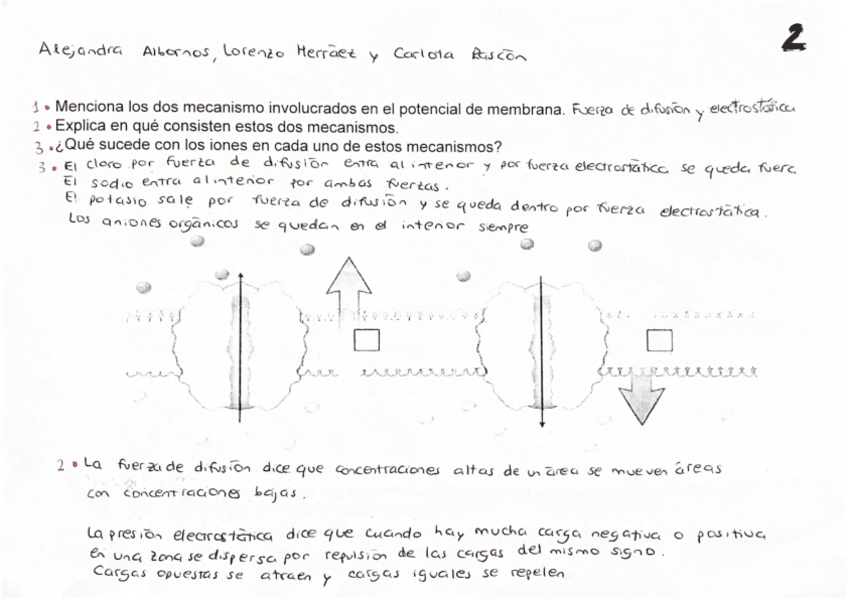 2
Alejandra Albornos, Lorenzo Herráez y Carlota Rascón
1 • Menciona los dos mecanismo involucrados en el potencial de membrana. Fuerza de difusión y electrostática
2 • Explica en qué consisten estos dos mecanismos.
3 • ¿Qué sucede con los iones en cada uno de estos mecanismos?
3 • El cloro por fuerza de difusión entra al interior y por fuerza electrostática se queda fuera
El sodio entra al interior por ambas fuerzas.
El potasio sale por fuerza de difusión y se queda dentro por fuerza electrostática.
Los aniones orgánicos se quedan en el interior siempre
2 • La fuerza de difusión dice que concentraciones altas de un área se mueven áreas
con concentraciones bajas.
La presión electrostática dice que cuando hay mucha carga negativa o positiva
en una zona se dispersa por repulsión de las cargas del mismo signo.
Cargas opuestas se atraen y cargas iguales se repelen